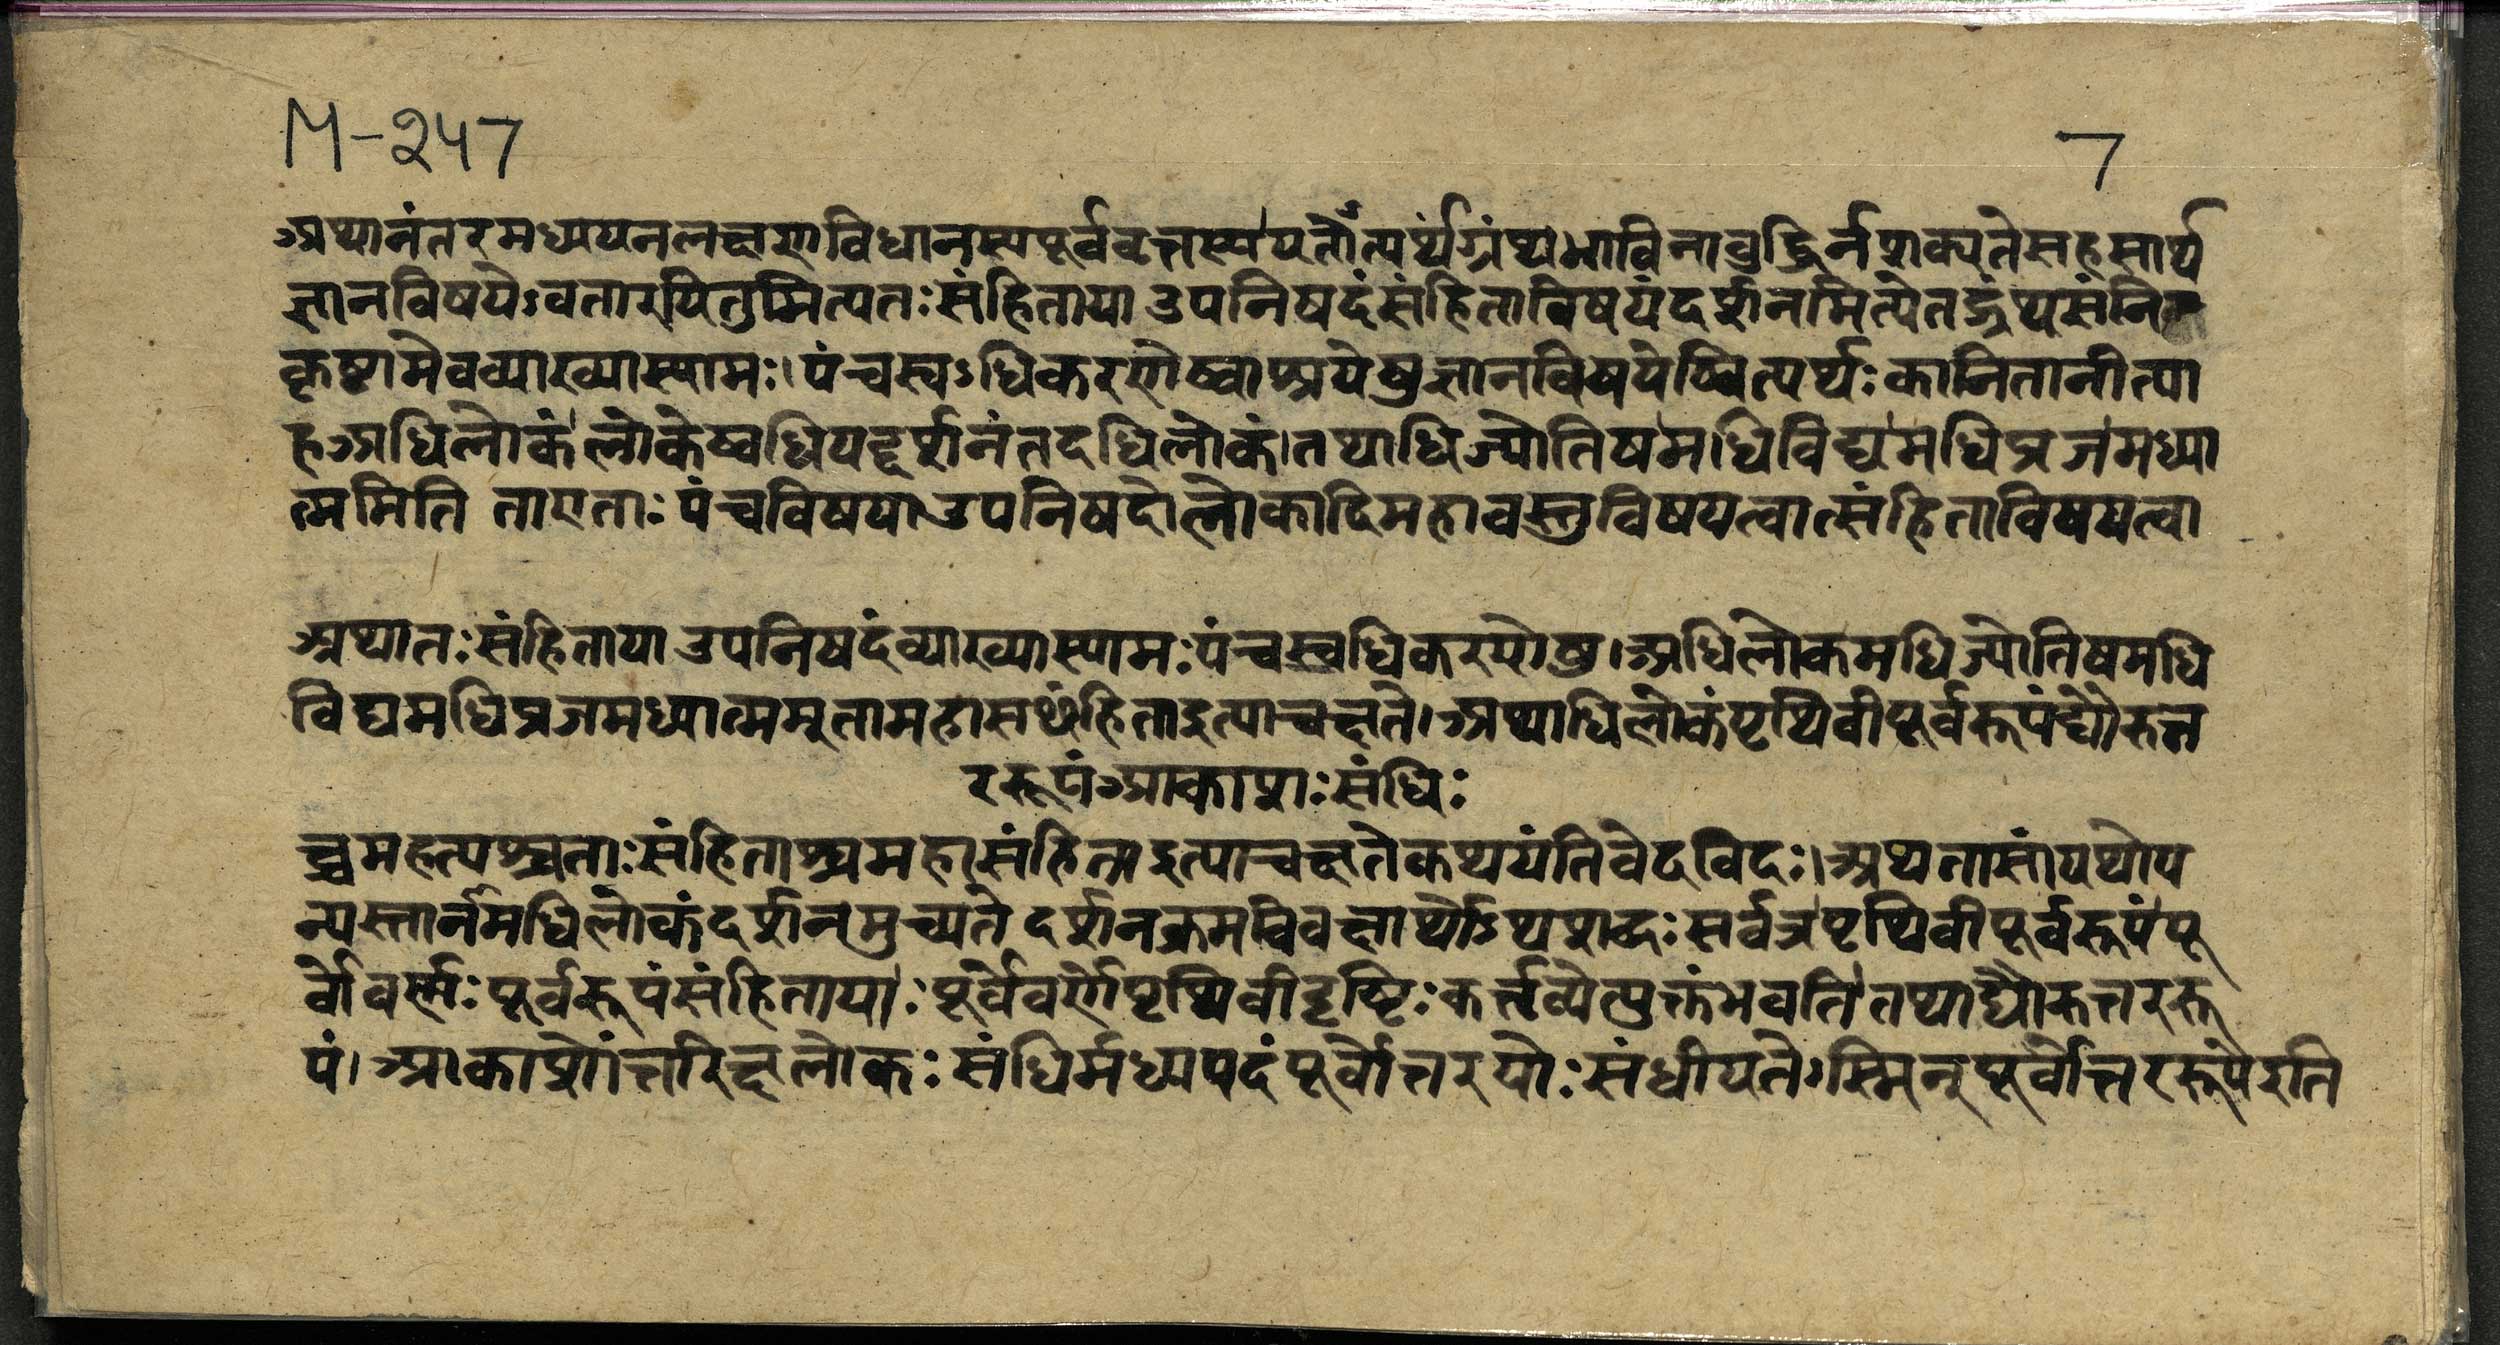 M-२४७
7
अथानंतरमध्ययनलक्षणविधानस्यपूर्ववत्तस्य।यतोत्यर्थंग्रंथभाविताबुद्धिर्नशक्यतेसहसार्थ
ज्ञानविषयेऽवतारयितुमित्यतःसंहितायाउपनिषदंसंहिताविषयंदर्शनमित्येतद्ग्रंथसंनि
कृष्टामेवव्याख्यास्यामः।पंचस्वऽधिकरणेष्वाश्रयेषुज्ञानविषयेष्वित्यर्थःकानितानीत्या
हअधिलोकं।लोकेष्वधियद्दर्शनंतदधिलोकं।तथाधिज्यौतिषमधिविद्यमधिप्रजमध्या
त्ममिति ताएताःपंचविषयाउपनिषदोलोकादिमहावस्तुविषयत्वात्संहिताविषयत्वा
अथातःसंहितायाउपनिषदंव्याख्यास्यामःपंचस्वधिकरणेषु।अधिलोकमधिज्योतिषमधि
विद्यमधिप्रजमध्यात्मम्‌तामहासꣳहिताइत्याचक्षते।अथाधिलोकंपृथिवीपूर्वरूपंद्यौरुत्त
ररूपंआकाशःसंधिः
च्चमहत्यश्चताःसंहिताश्चमहासंहिताइत्याचक्षतेकथयंतिवेदविदः।अथतासांयथोप
न्यस्तार्नमधिलोकंदर्शनमुच्यते दर्शनक्रमविवक्षार्थोऽथशब्दःसर्वत्रपृथिवीपूर्वरूपंपू
र्वोवर्णःपूर्वरूपंसंहितायाःपूर्वेवर्णेपृथिवीदृष्टिःकर्त्तव्येत्युक्तंभवति।तथाद्यौरुत्तररू
पं।आकाशोंत्तरिक्षलोकःसंधिर्मध्यपदंपूर्वोत्तरयोःसंधीयतेऽस्मिन्पूर्वोत्तररूपेइति